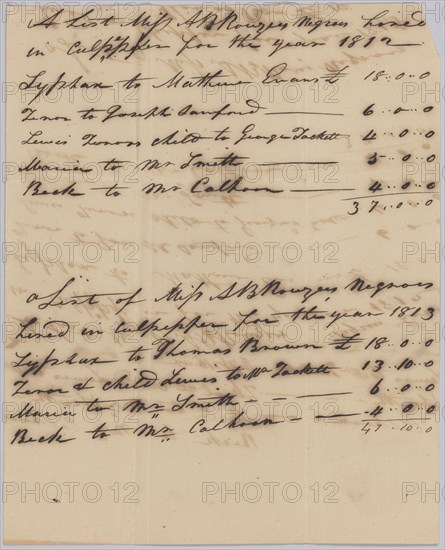 A List Miss A B Rouzees Negros hired
in Culpepper for the year 1812
Syphax to Mathew Evans £ 18..0..0
Tenor to Joseph Sanford 6..0..0
Lewis Tenors child to George Tackett 4..0..0
Maria to Mr Smith 5..0..0
Beck to Mr Calhoon 4..0..0
37..0..0
a List of Miss A B Rouzees Negroes
hired in Culpepper for the year 1813
Syphax to Thomas Brown £ 18..0..0
Tenor & child Lewis to Mr Tackett 13..10..0
Maria to Mr Smith 6..0..0
Beck to Mr Calhoon 4..0..0
47..10..0
PHOTO 12